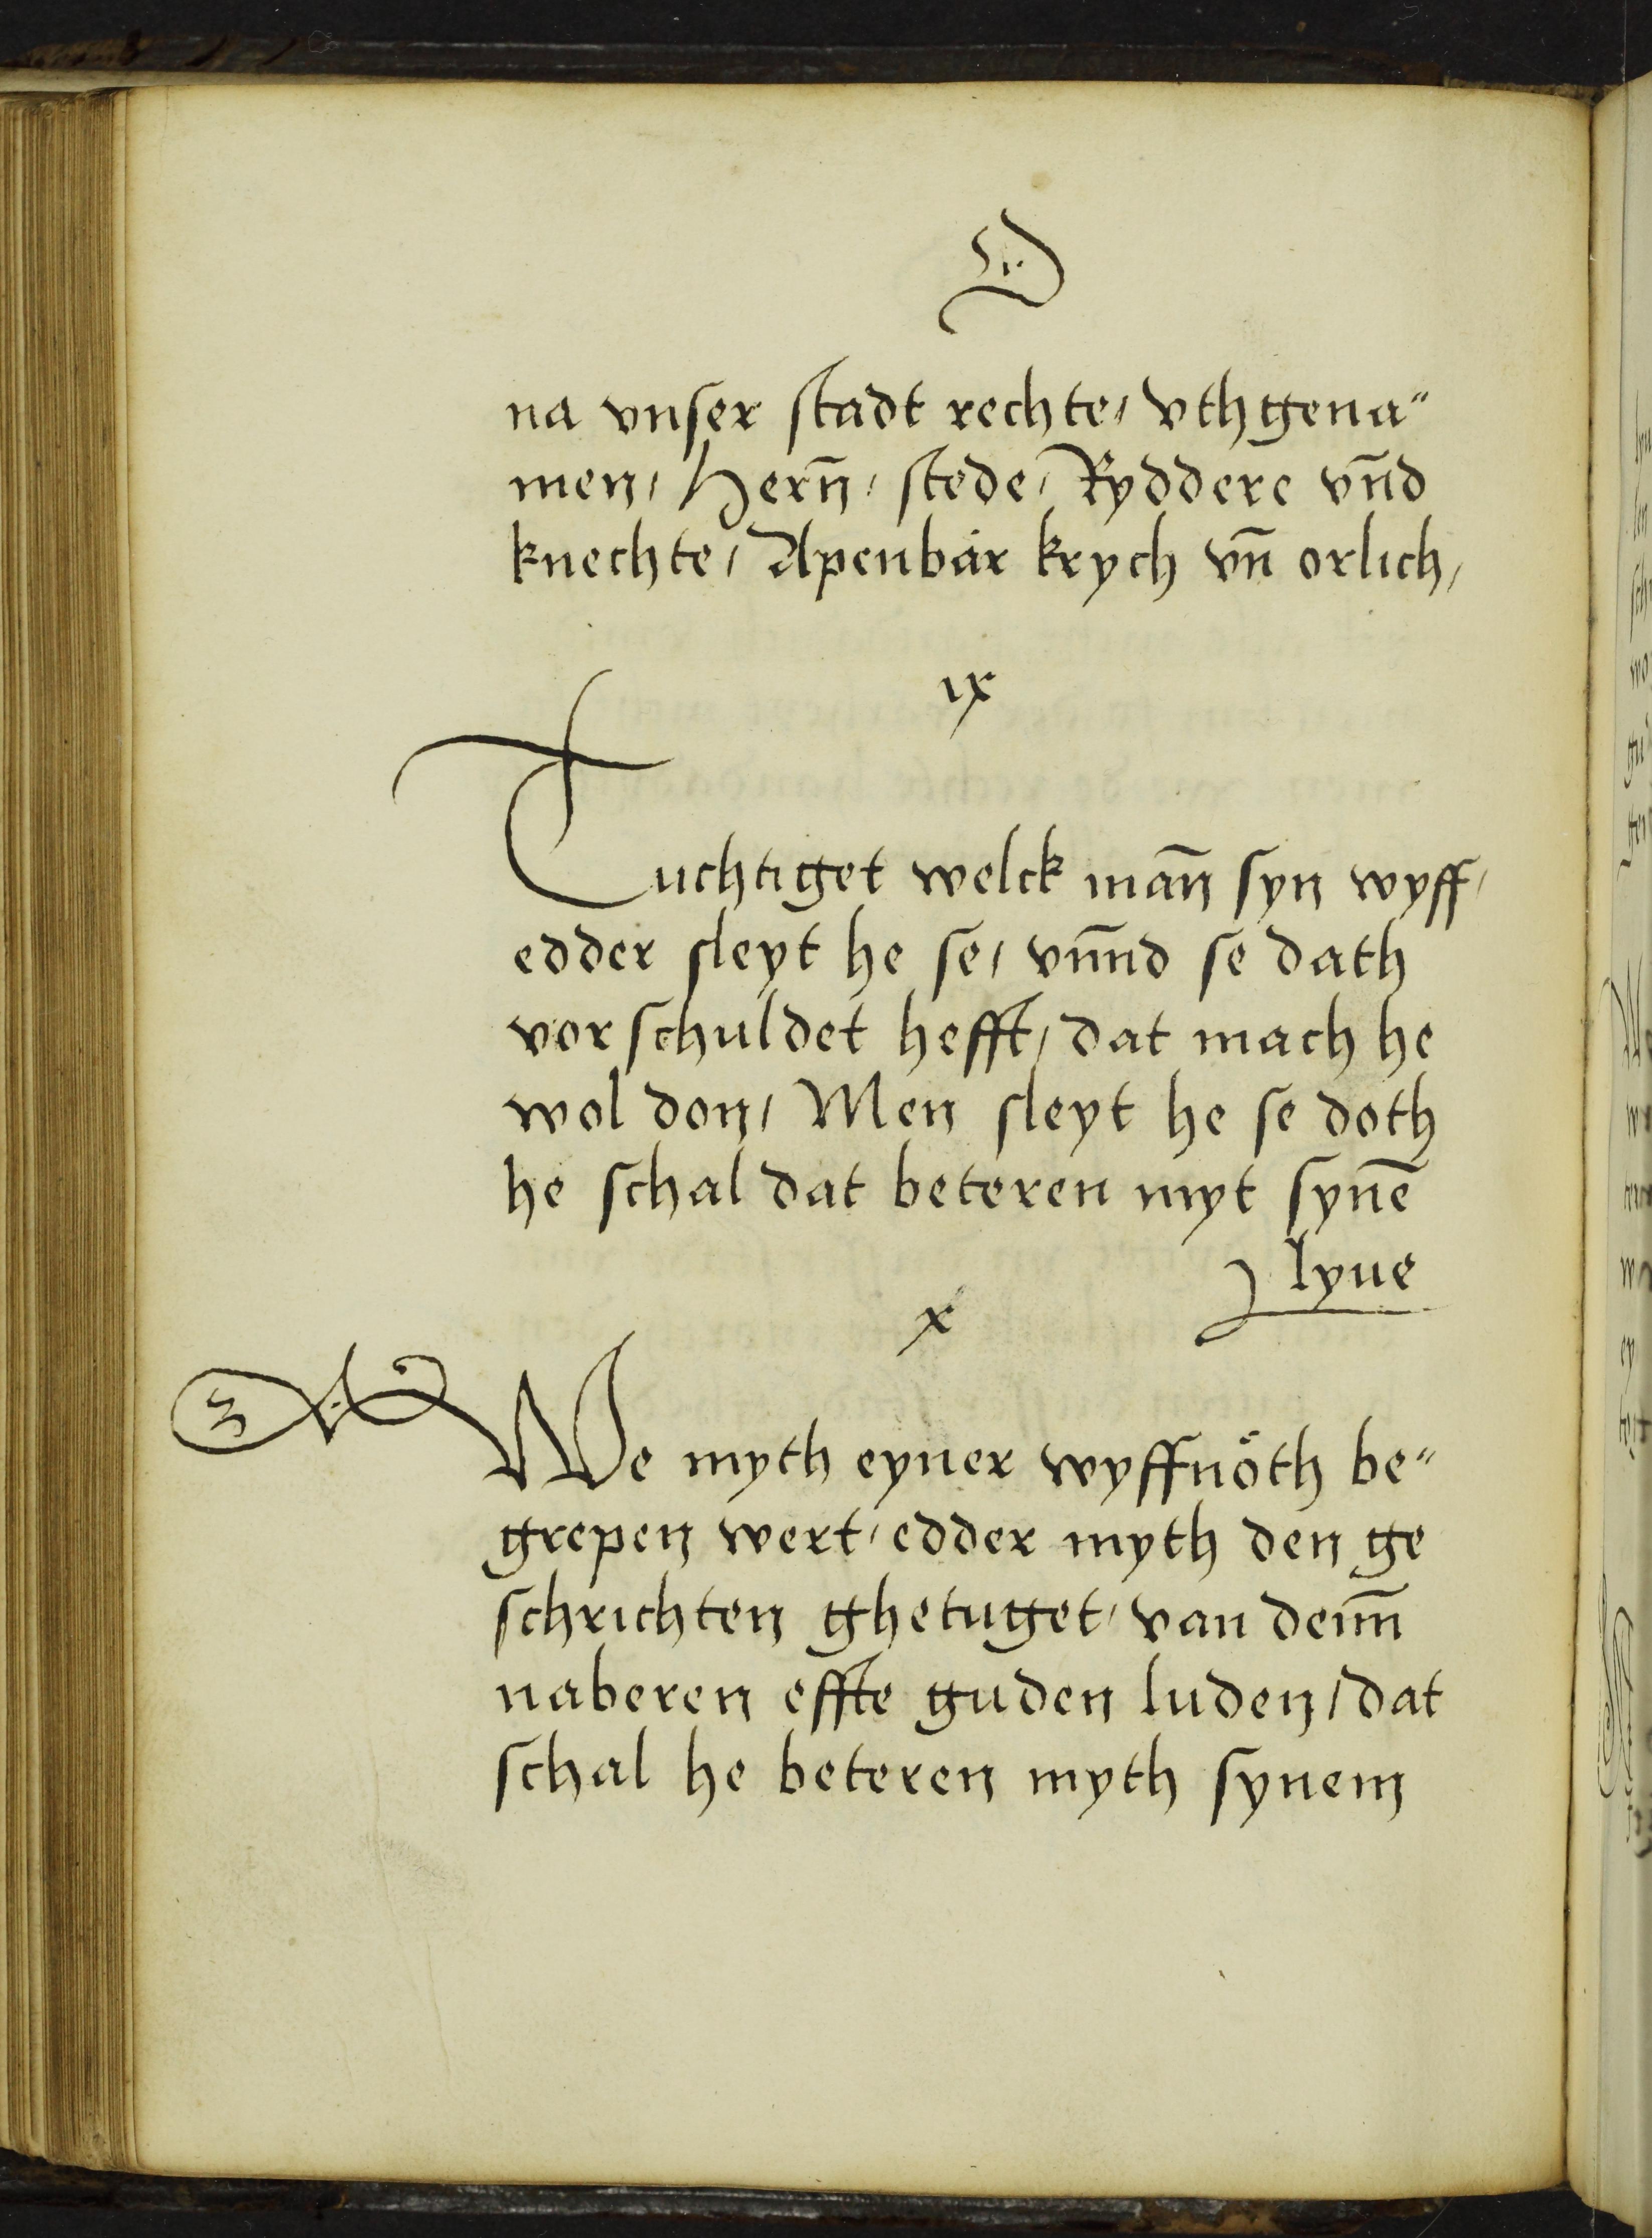 D
na vnser stadt rechte, vthgena"
men, Hern̄, stede, Ryddere vn̄d
knechte, Apenbar krych vn̄ orlich,
ıx
Tuchtiget welck man̄ syn wyff,
edder sleyt he se, vn̄nd se dath
vorschuldet hefft, dat mach he
wol don, Men sleyt he se doth
he schal dat beteren myt synē
lyue
x
We myth eyner wyffnöth be"
grepen wert, edder myth den ge
schrichten ghetuget, van dem̄
naberen effte guden luden, dat
schal he beteren myth synem